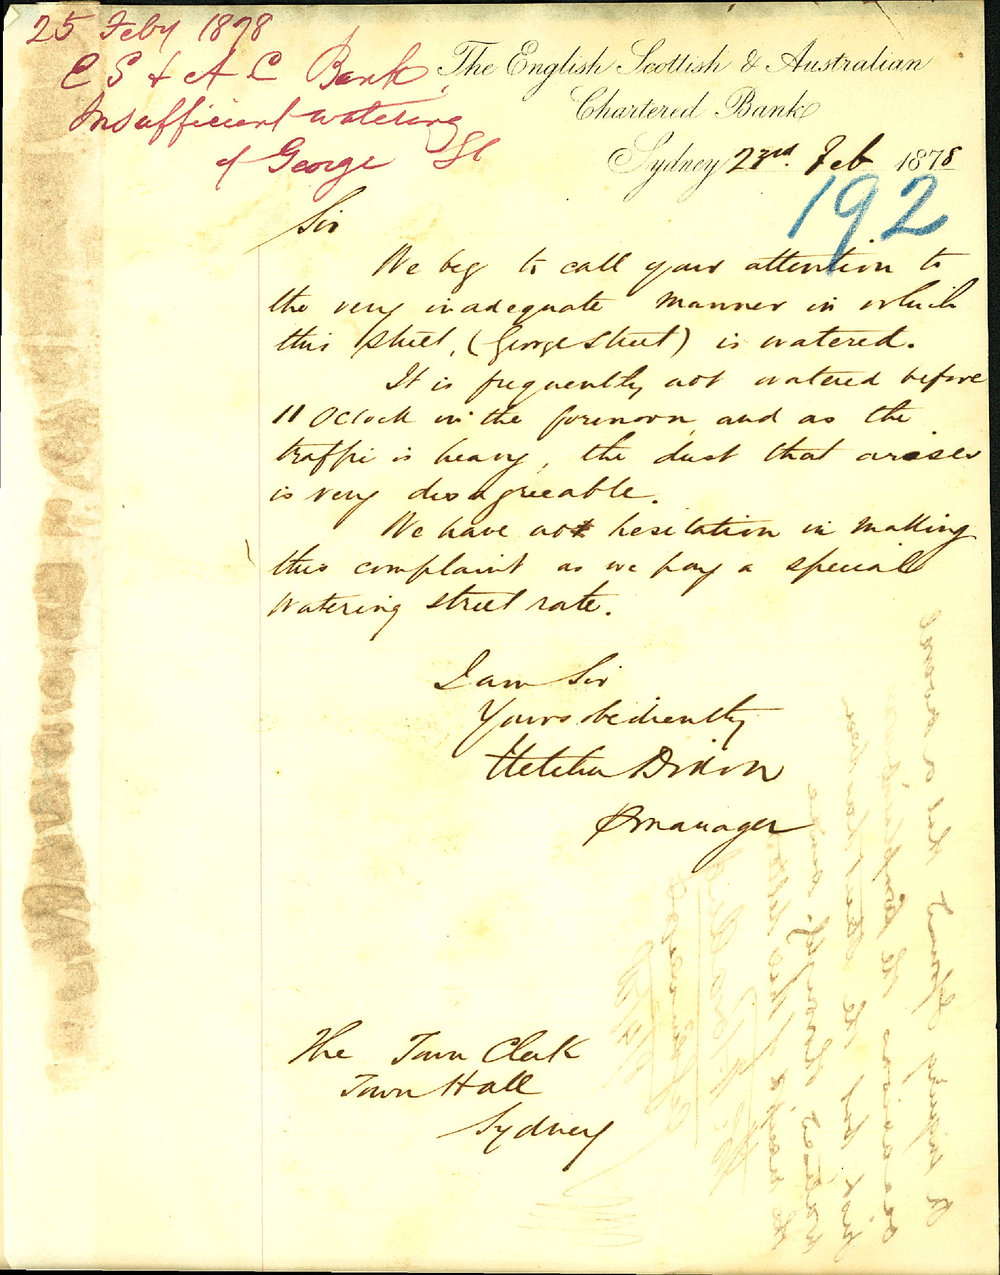 25 Feby 1878
E S & A C Bank,
Insufficient watering
of George St
The English Scottish & Australian
Chartered Bank
Sydney 23rd. Feb 1878
192
Sir
We beg to call your attention to
the very inadequate manner in which
this street, (George Street) is watered.
It is frequently not watered before
11 OClock in the forenoon, and as the
traffic is heavy, the dust that arises
is very disagreeable.
We have not hesitation in making
this complaint as we pay a special
watering street rate.
I am Sir
Yours obediently
Dixon
manager
The Town Clerk
Town Hall
Sydney